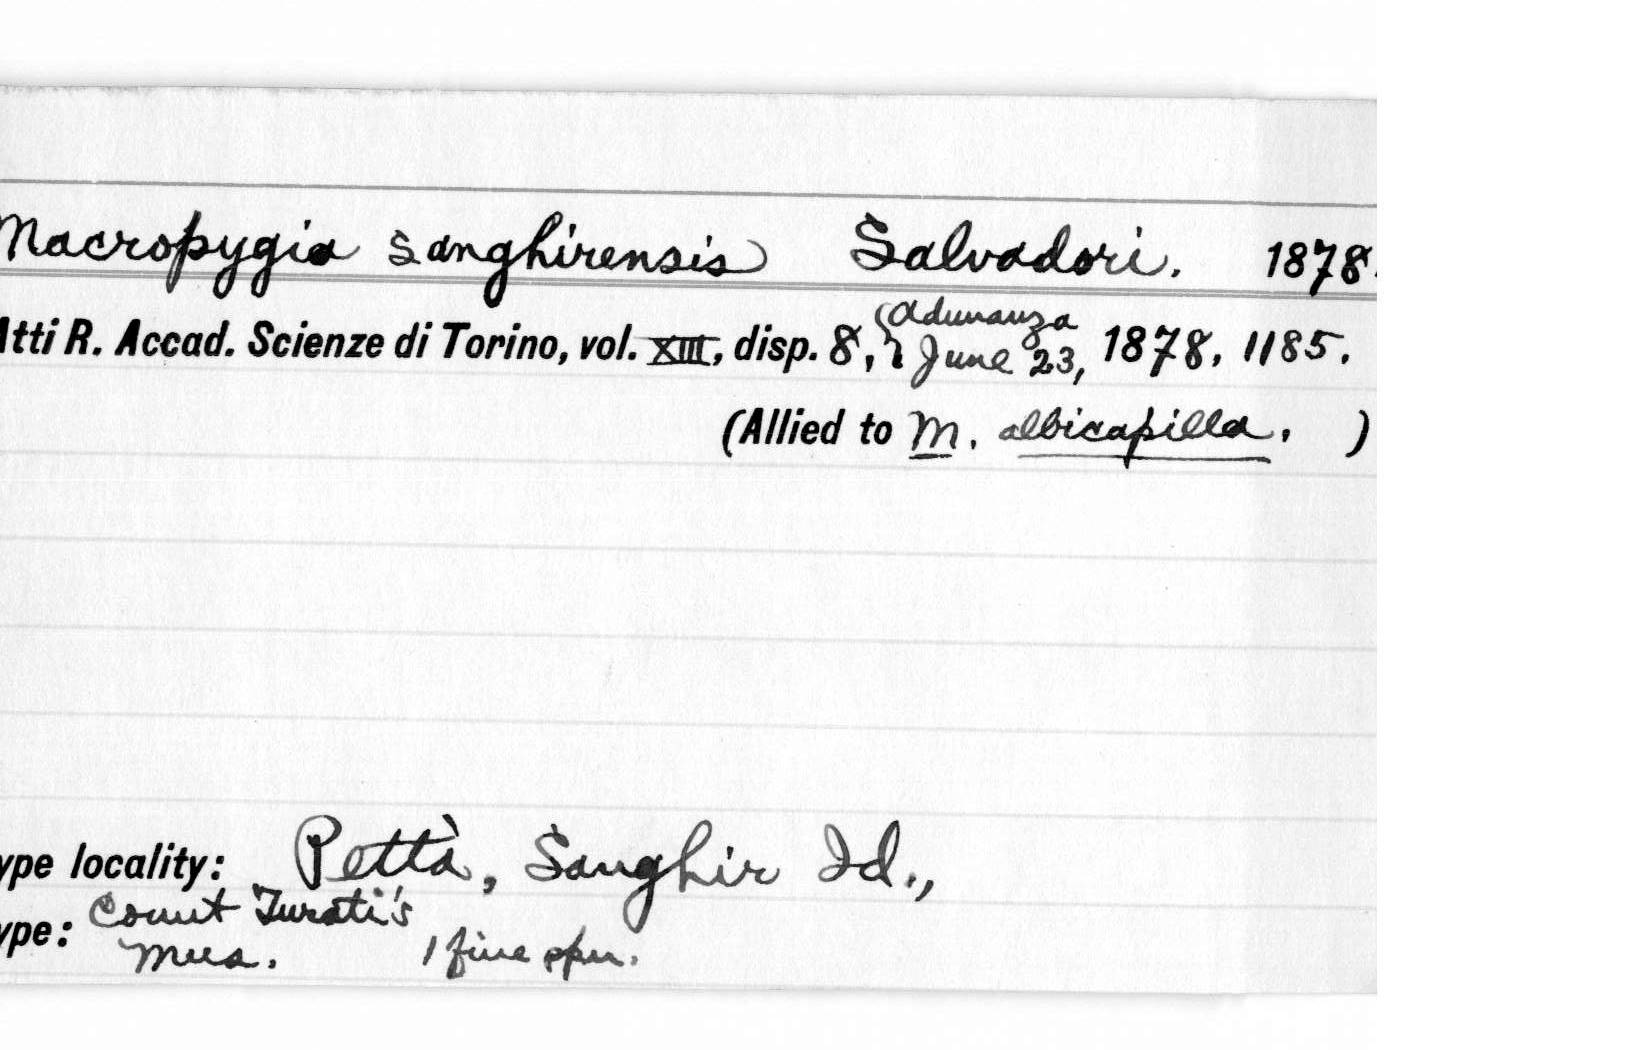 Macropygia sanghirensis Salvadori. 1878.
Atti R. Accad. Scienze di Torino, vol. XIII, disp. 8, { Adunanza June 23, 1878, 1185.
(Allied to M. albicapilla. )
ype locality: Pettà, Sanghir Id.,
ype: Count Turati's
Mus. 1 fine spm.